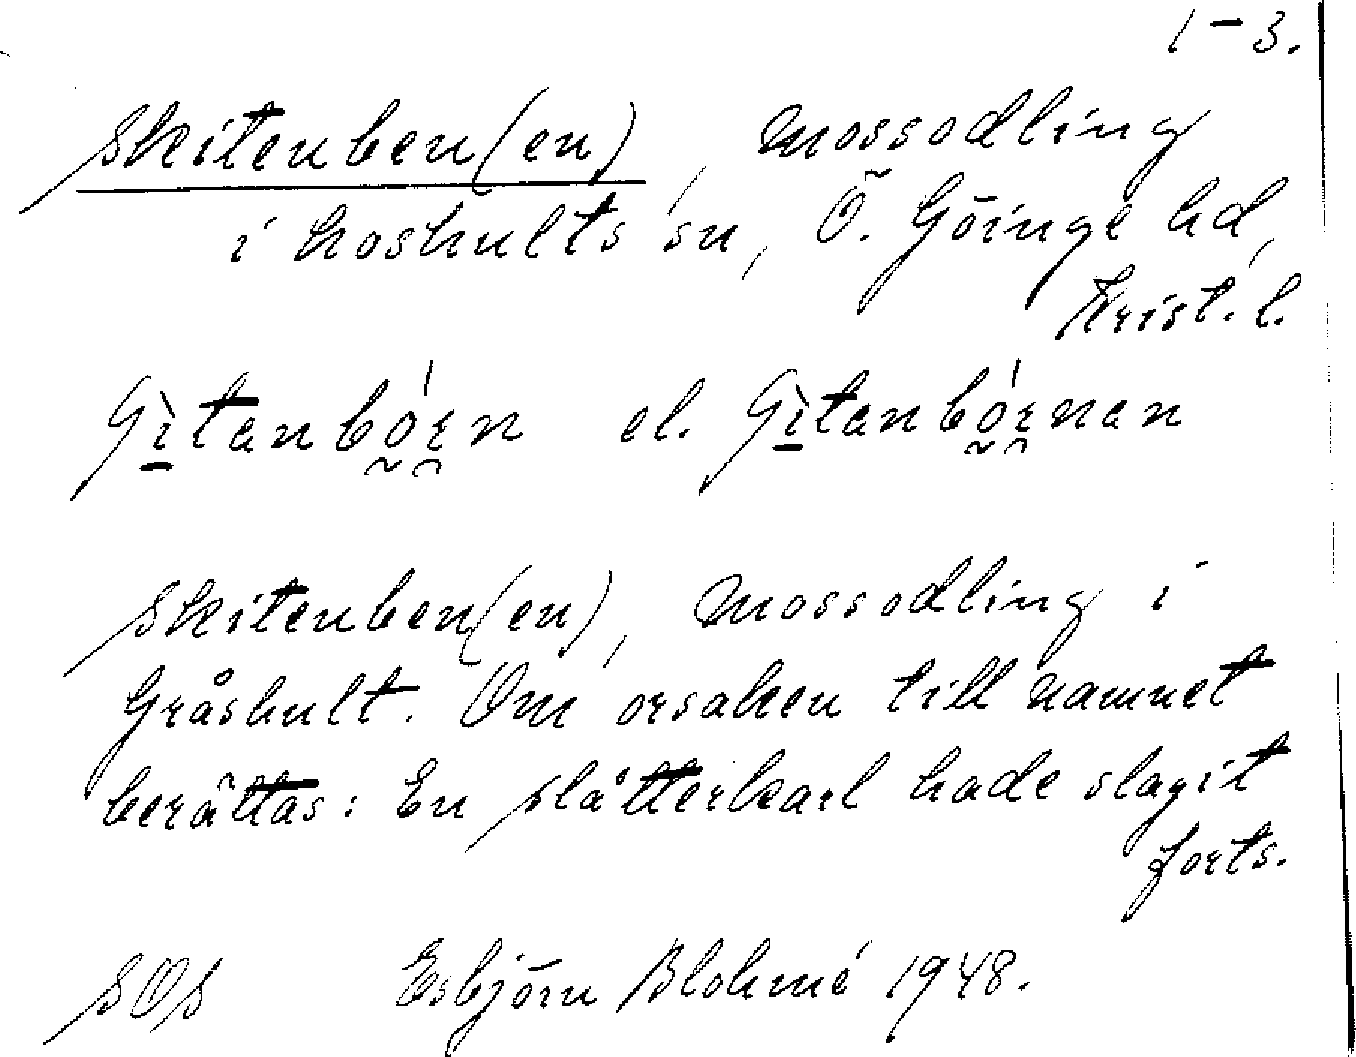 1-3.
Skitenben(en), mossodling
i Loshults sn, Ö. Göinge hd,
Krist. l.
el.
Skitenben(en), mossodling i
Gråshult. Om orsaken till namnet
berättas: En slåtterkarl hade slagit
forts.
SOS Esbjörn Blohmé 1948.